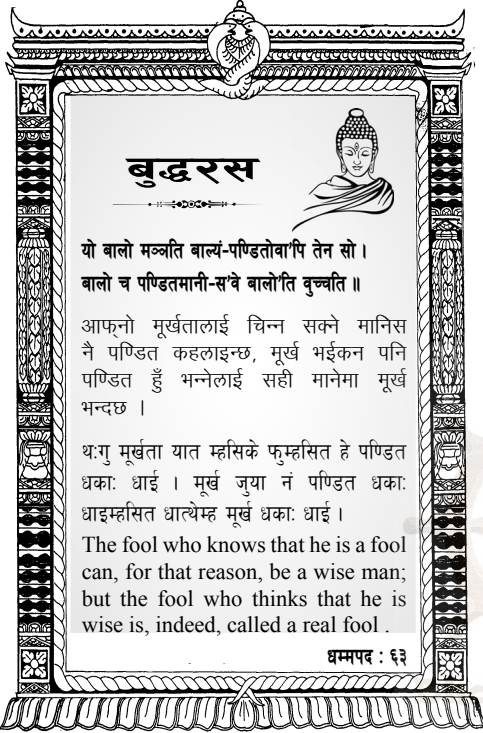 बुद्धरस
यो बालो मञ्ञति बाल्यं-पण्डितोवा'पि तेन सो ।
बालो च पण्डितमानी-स'वे बालो'ति वुच्चति ॥
आफ्नो मूर्खतालाई चिन्न सक्ने मानिस
नै पण्डित कहलाइन्छ, मूर्ख भईकन पनि
पण्डित हुँ भन्नेलाई सही मानेमा मूर्ख
भन्दछ ।
थःगु मूर्खता यात म्हसिके फुम्हसित हे पण्डित
धकाः धाई । मूर्ख जुया नं पण्डित धकाः
धाइम्हसित धात्थेम्ह मूर्ख धकाः धाई ।
The fool who knows that he is a fool
can, for that reason, be a wise man;
but the fool who thinks that he is
wise is, indeed, called a real fool .
धम्मपद : ६३